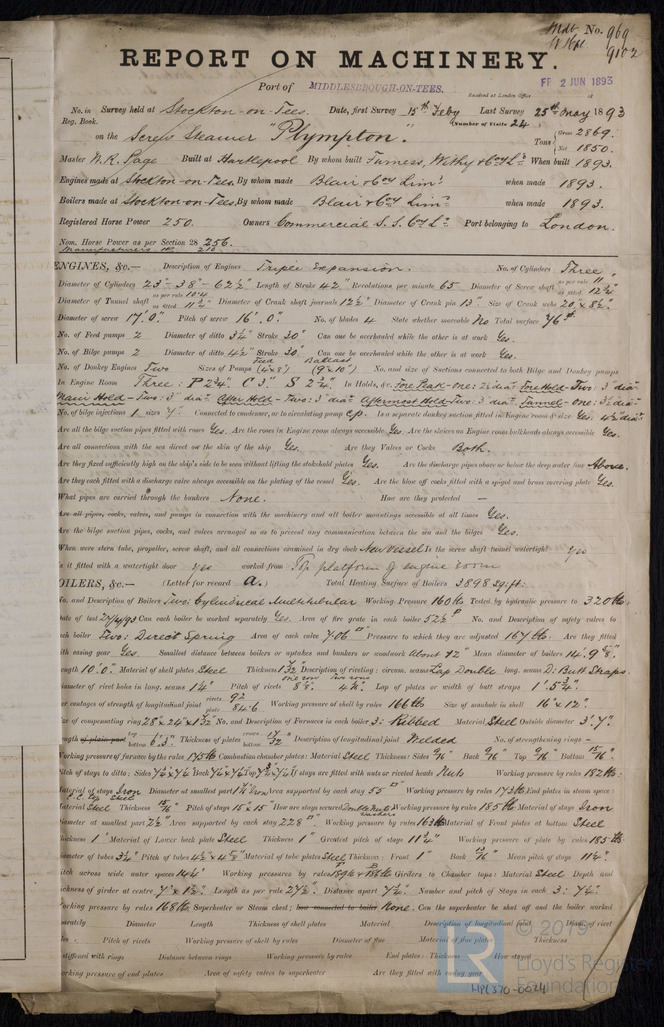 Mdb. No. 969
W Hpl 9102
REPORT ON MACHINERY.
Port of MIDDLESBROUGH-ON-TEES.
Received at London Office FRI 2 JUN 1893
No. in Survey held at Stockton-on-Tees. Date, first Survey 15th Feby Last Survey 25th May 1893
Reg. Book. (Number of Visits 24
on the Screw Steamer "Plympton." Tons Gross 2869. Net 1850.
Master W. R. Page Built at Hartlepool By whom built Furness, Withy & Coy Ld. When built 1893.
Engines made at Stockton-on-Tees. By whom made Blair & Coy Limd. when made 1893.
Boilers made at Stockton-on-Tees. By whom made Blair & Coy Limd. when made 1893.
Registered Horse Power 250. Owners Commercial S. S. Coy Ld. Port belonging to London.
Nom. Horse Power as per Section 28 256.
ENGINES, &c.— Description of Engines Triple Expansion. No. of Cylinders Three
Diameter of Cylinders 23"-38"-62½" Length of Stroke 42" Revolutions per minute 65 Diameter of Screw shaft as per rule 11" as fitted 12¼"
Diameter of Tunnel shaft as per rule 10.4 as fitted 11¾" Diameter of Crank shaft journals 12½" Diameter of Crank pin 13" Size of Crank webs 20 x 8½"
Diameter of screw 17'.0" Pitch of screw 16'.0" No. of blades 4 State whether moveable No Total surface 76
No. of Feed pumps 2 Diameter of ditto 3¼" Stroke 30" Can one be overhauled while the other is at work Yes.
No. of Bilge pumps 2 Diameter of ditto 4½" Stroke 30" Can one be overhauled while the other is at work Yes.
No. of Donkey Engines Two Sizes of Pumps Feed (4x8") Ballast (9x10") No. and size of Suctions connected to both Bilge and Donkey pumps
In Engine Room Three: P 2¾" C 3" S 2¾" In Holds, &c. Fore Peak - One: 2½ dia Fore Hold - Two: 3" dia
Main Hold - Two: 3" dia After Hold - Two: 3" dia Aftermost Hold - Two: 3" dia Tunnel - One: 3½ dia
No. of bilge injections 1 sizes 7" Connected to condenser, or to circulating pump C/P. Is a separate donkey suction fitted in Engine room & size Yes. 4½" dia
Are all the bilge suction pipes fitted with roses Yes. Are the roses in Engine room always accessible Yes. Are the sluices on Engine room bulkheads always accessible Yes.
Are all connections with the sea direct on the skin of the ship Yes. Are they Valves or Cocks Both.
Are they fixed sufficiently high on the ship's side to be seen without lifting the stokehold plates Yes. Are the discharge pipes above or below the deep water line Above.
Are they each fitted with a discharge valve always accessible on the plating of the vessel Yes. Are the blow off cocks fitted with a spigot and brass covering plate Yes.
What pipes are carried through the bunkers None. How are they protected —
Are all pipes, cocks, valves, and pumps in connection with the machinery and all boiler mountings accessible at all times Yes.
Are the bilge suction pipes, cocks, and valves arranged so as to prevent any communication between the sea and the bilges Yes.
When were stern tube, propeller, screw shaft, and all connections examined in dry dock New Vessel Is the screw shaft tunnel watertight yes
Is it fitted with a watertight door yes worked from Top platform of engine room
BOILERS, &c.— (Letter for record a.) Total Heating Surface of Boilers 3898 sq: ft:
No. and Description of Boilers Two: Cylindrical Multitubular Working Pressure 160 lbs Tested by hydraulic pressure to 320 lbs.
Date of test 27/4/93 Can each boiler be worked separately Yes. Area of fire grate in each boiler 52½ No. and Description of safety valves to
each boiler Two: Direct Spring Area of each valve 7.06 Pressure to which they are adjusted 167 lbs. Are they fitted
with easing gear Yes Smallest distance between boilers or uptakes and bunkers or woodwork About 12" Mean diameter of boilers 14'.9⅝"
Length 10'.0" Material of shell plates Steel Thickness 1 7/32 Description of riveting: circum. seams Lap Double long. seams D: Butt Straps.
Diameter of rivet holes in long. seams 1¼" Pitch of rivets 8⅝ 4⅝ Lap of plates or width of butt straps 1'.5¾"
Per centages of strength of longitudinal joint rivets 92 plate 84.6 Working pressure of shell by rules 166 lbs Size of manhole in shell 16"x12"
Size of compensating ring 28"x24"x1 7/32 No. and Description of Furnaces in each boiler 3: Ribbed Material Steel Outside diameter 3'.7"
Length of plain part top bottom 6'.3" Thickness of plates crown bottom 17/32" Description of longitudinal joint Welded No. of strengthening rings —
Working pressure of furnace by the rules 175 lbs Combustion chamber plates: Material Steel Thickness: Sides 9/16" Back 9/16" Top 9/16" Bottom 15/16"
Pitch of stays to ditto: Sides Back Top If stays are fitted with nuts or riveted heads Nuts Working pressure by rules 182 lbs:
Material of stays Iron Diameter at smallest part Area supported by each stay 55 Working pressure by rules 173 lbs. End plates in steam space:
Material Steel Thickness 15/16" Pitch of stays 15x15" How are stays secured Double Nuts & washers Working pressure by rules 185 lbs Material of stays Iron
Diameter at smallest part 2½" Area supported by each stay 228 Working pressure by rules 163 lbs Material of Front plates at bottom Steel
Thickness 1" Material of Lower back plate Steel Thickness 1" Greatest pitch of stays 11¾" Working pressure of plate by rules 185 lbs:
Diameter of tubes 3¼" Pitch of tubes 4½ x 4⅝" Material of tube plates Steel Thickness: Front 1" Back 13/16" Mean pitch of stays 11¼"
Pitch across wide water spaces 14¼" Working pressures by rules Girders to Chamber tops: Material Steel Depth and
thickness of girder at centre 7"x1½" Length as per rule 27½" Distance apart 7½" Number and pitch of Stays in each 3: 7¼"
Working pressure by rules 168 lbs Superheater or Steam chest; how connected to boiler None. Can the superheater be shut off and the boiler worked
separately Diameter Length Thickness of shell plates Material Description of longitudinal joint Diam. of rivet
holes Pitch of rivets Working pressure of shell by rules Diameter of flue Material of flue plates Thickness
If stiffened with rings Distance between rings Working pressure by rules End plates: Thickness How stayed
Working pressure of end plates Area of safety valves to superheater Are they fitted with easing gear
© 2019
LR
Lloyd's Register
Foundation
HPL370-0024